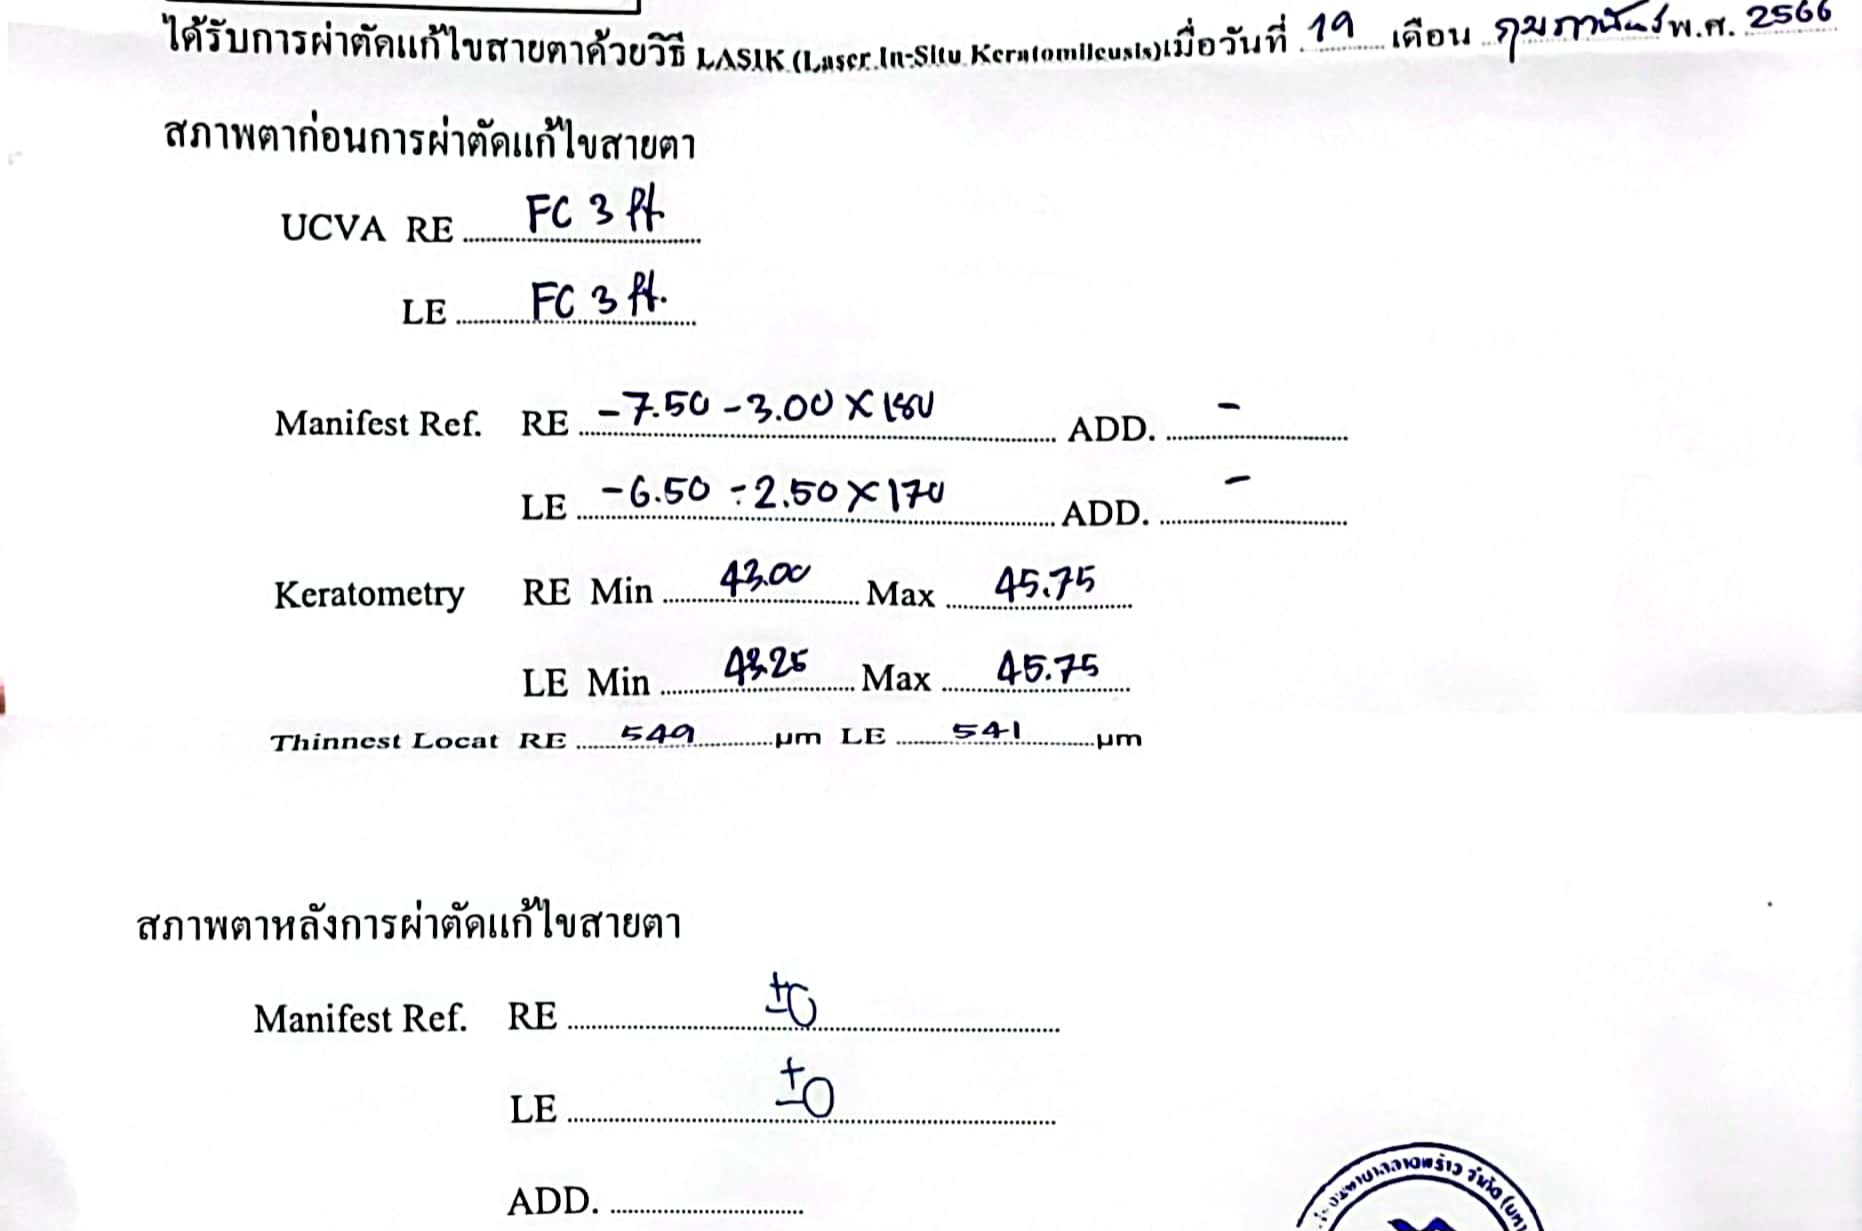 ได้รับการผ่าตัดแก้ไขสายตาด้วยวิธี LASIK (Laser In-Situ Keratomileusis)เมื่อวันที่ 19 เดือน กุมภาพันธ์ พ.ศ. 2566
สภาพตาก่อนการผ่าตัดแก้ไขสายตา
UCVA RE FC 3 ft.
LE FC 3 ft.
Manifest Ref. RE -7.50 -3.00 X 180 ADD. -
LE -6.50 -2.50 X 170 ADD. -
Keratometry RE Min 43.00 Max 45.75
LE Min 43.25 Max 45.75
Thinnest Locat RE 549 µm LE 541 µm
สภาพตาหลังการผ่าตัดแก้ไขสายตา
Manifest Ref. RE ±0
LE ±0
ADD.